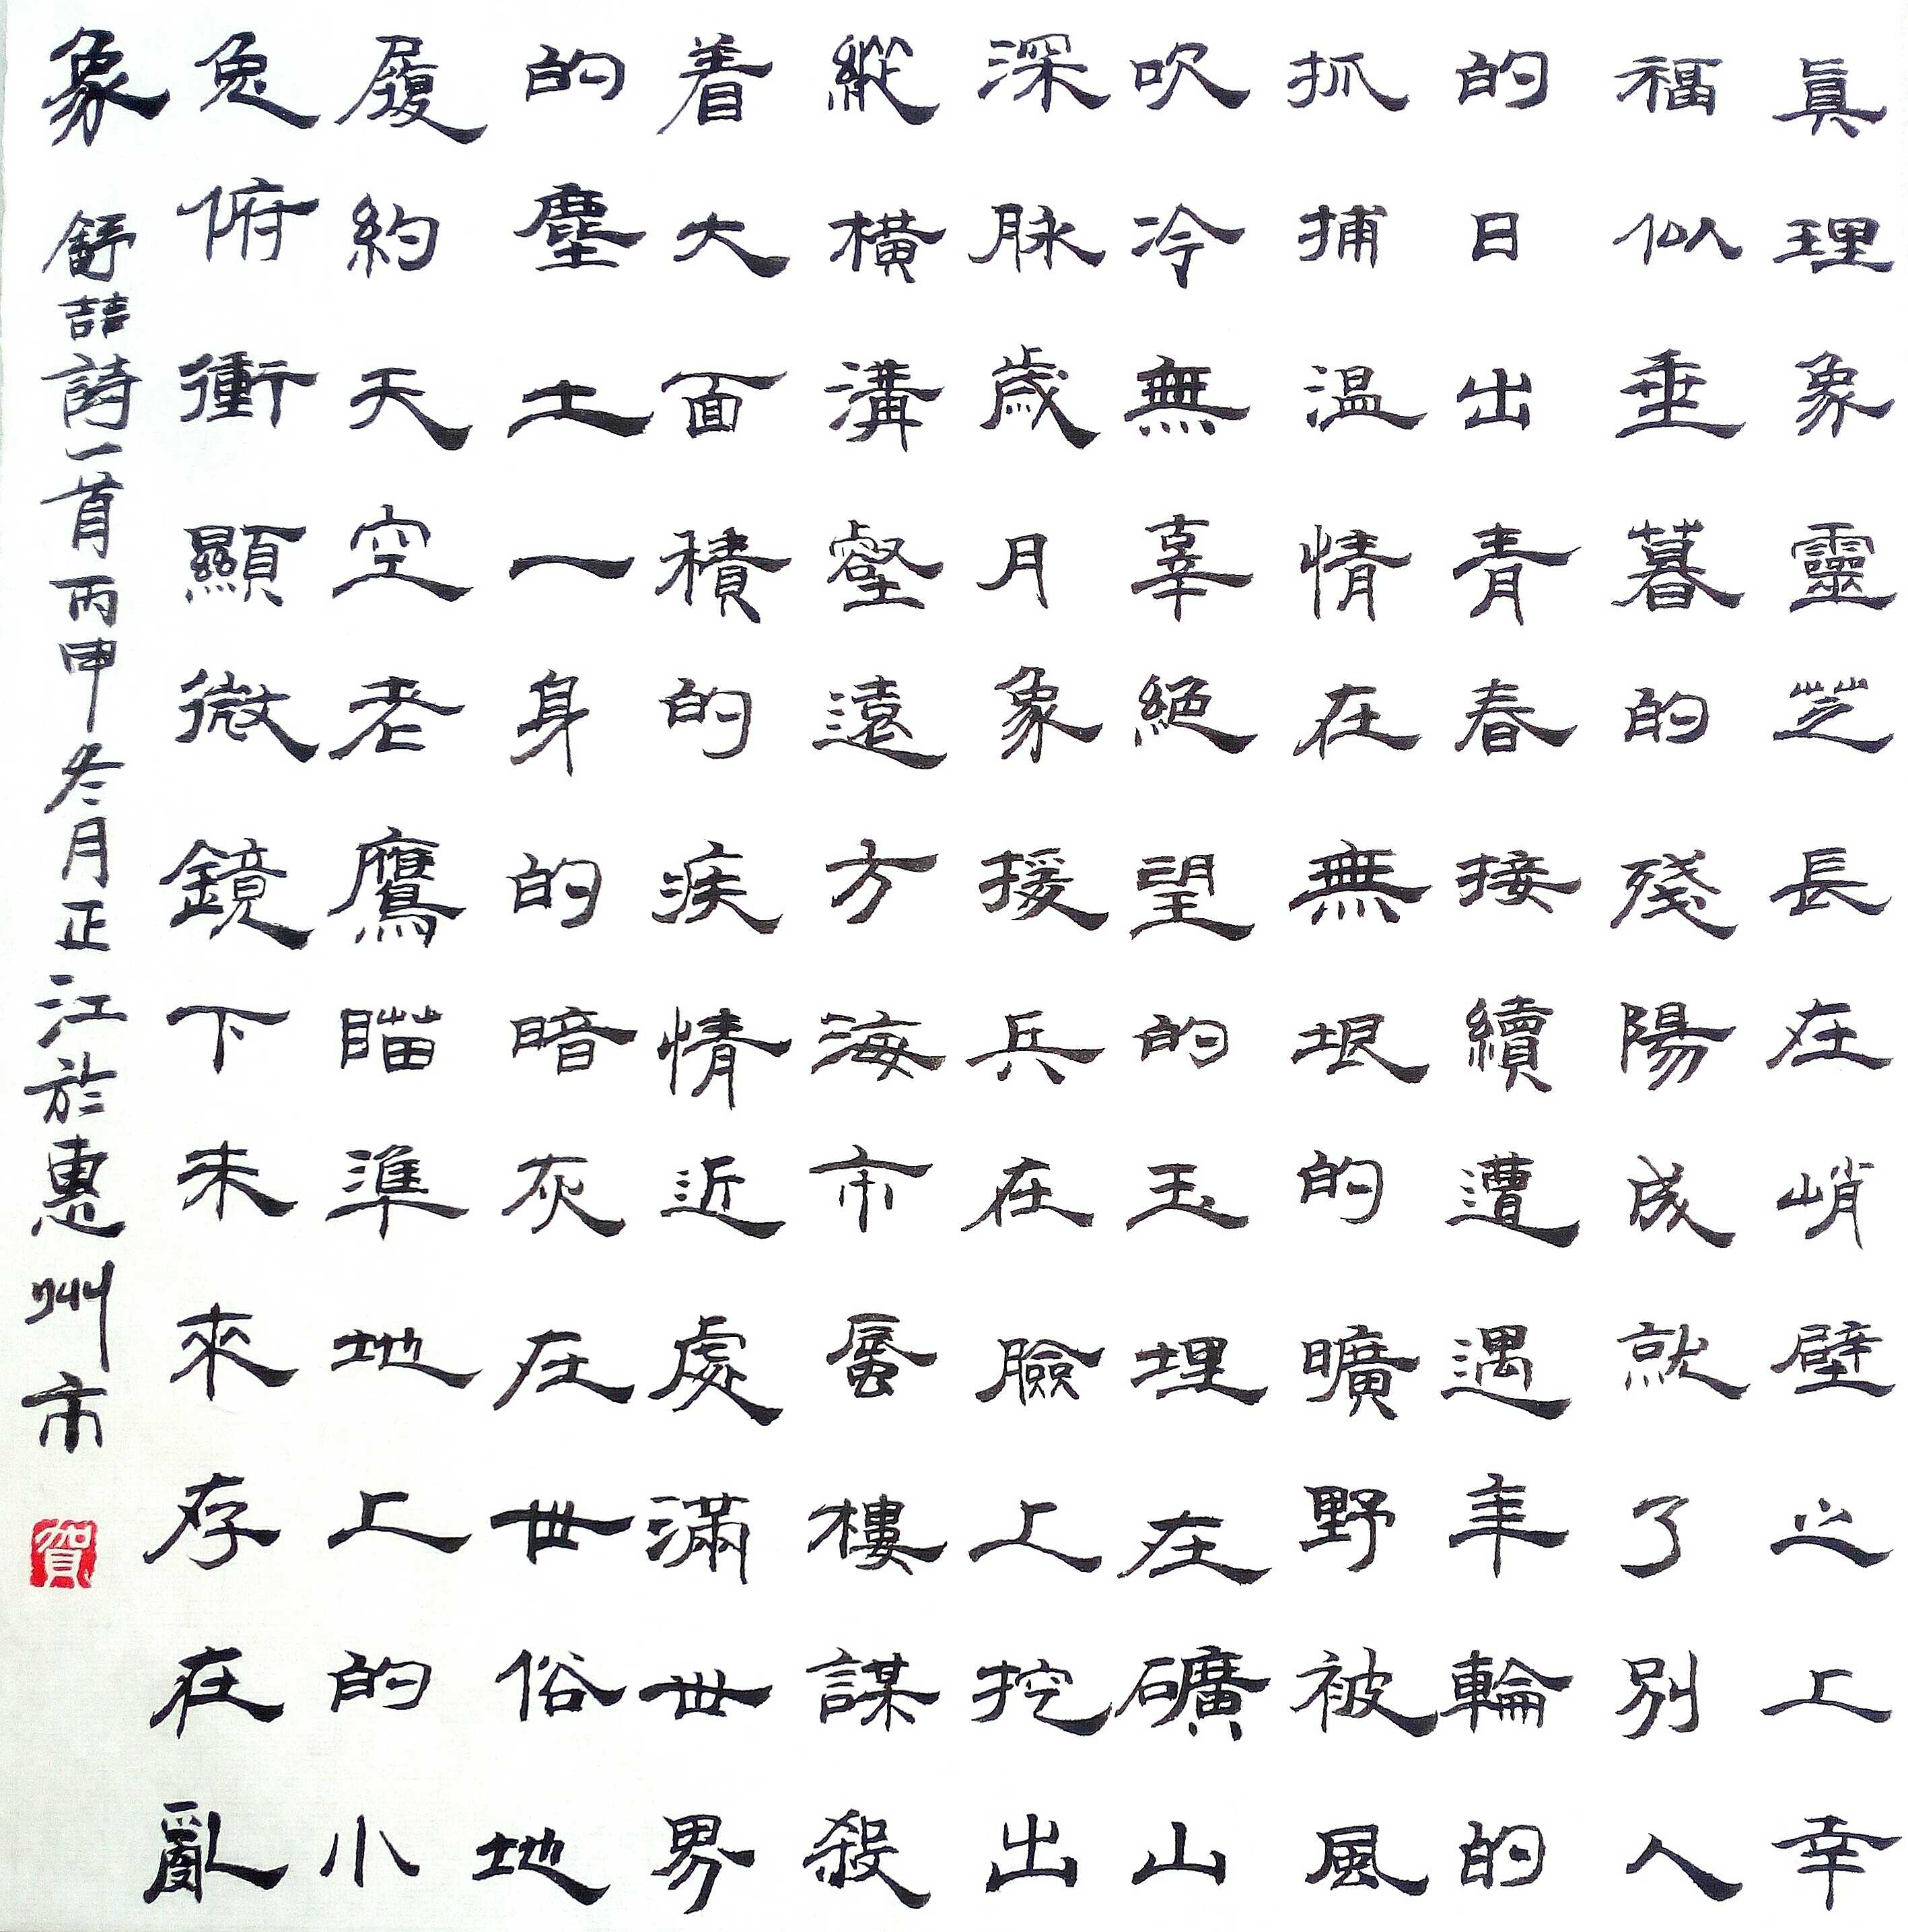 眞理象靈芝長在峭壁之上幸
福似垂暮的殘陽成就了別人
的日出青春接續遭遇年輪的
抓捕温情在無垠的曠野被風
吹冷無辜絕望的玉埋在礦山
深脉歲月象援兵在臉上挖出
縱橫溝壑遠方海市蜃樓謀殺
着大面積的疾情近處滿世界
的塵土一身的暗灰在世俗地
履約天空老鷹瞄準地上的小
兔俯衝顯微鏡下未來存在亂
象 舒喆詩一首丙申冬月正江於惠州市
賀